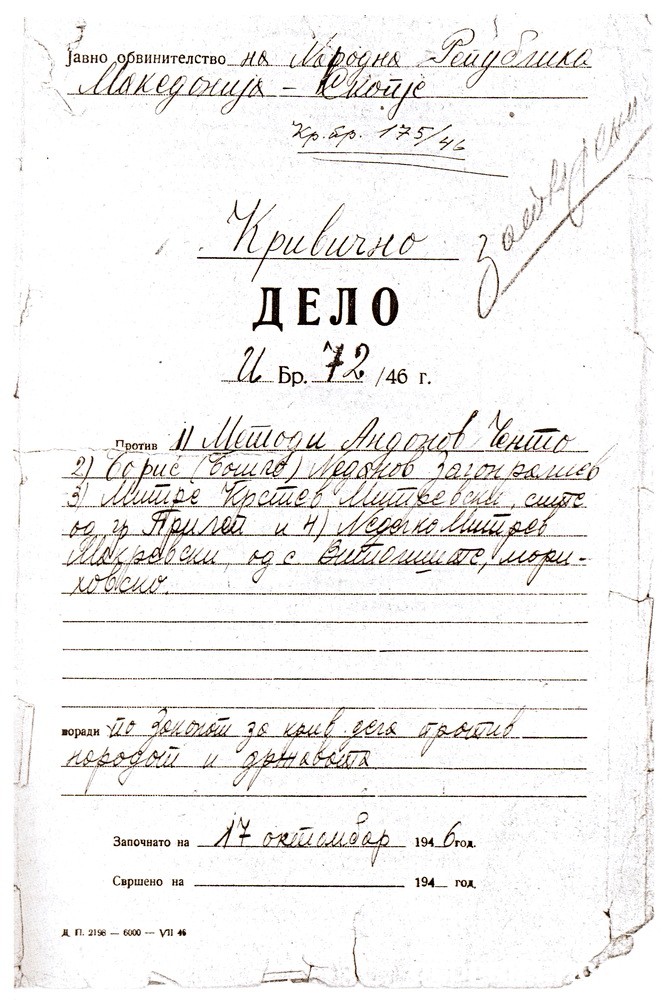 Јавно обвинителство на Народна Република
Македонија - Скопје
Кр.бр. 175/46
Затворени
Кривично
ДЕЛО
И Бр. 72 /46 г.
Против 1) Методи Андонов Ченто
2) Борис (Бошко)
3) Митре Крстев Митревски, сите
од гр Прилеп и 4) Недељко Митрев
од с Витолиште, мори-
ховско.
поради по Законот за крив. дела против
народот и државата
Започнато на 17 октомбар 1946 год.
Свршено на 194 год.
Д. П. 2198 — 6000 — VII 46